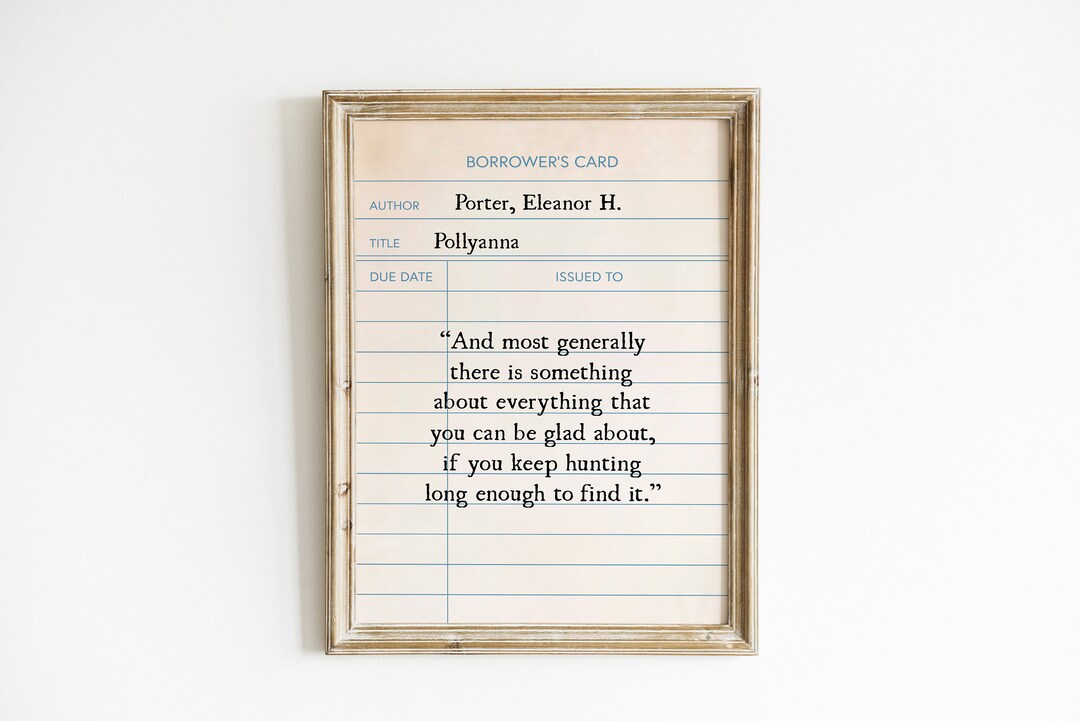 BORROWER'S CARD
AUTHOR Porter, Eleanor H.
TITLE Pollyanna
DUE DATE ISSUED TO
“And most generally
there is something
about everything that
you can be glad about,
if you keep hunting
long enough to find it.”